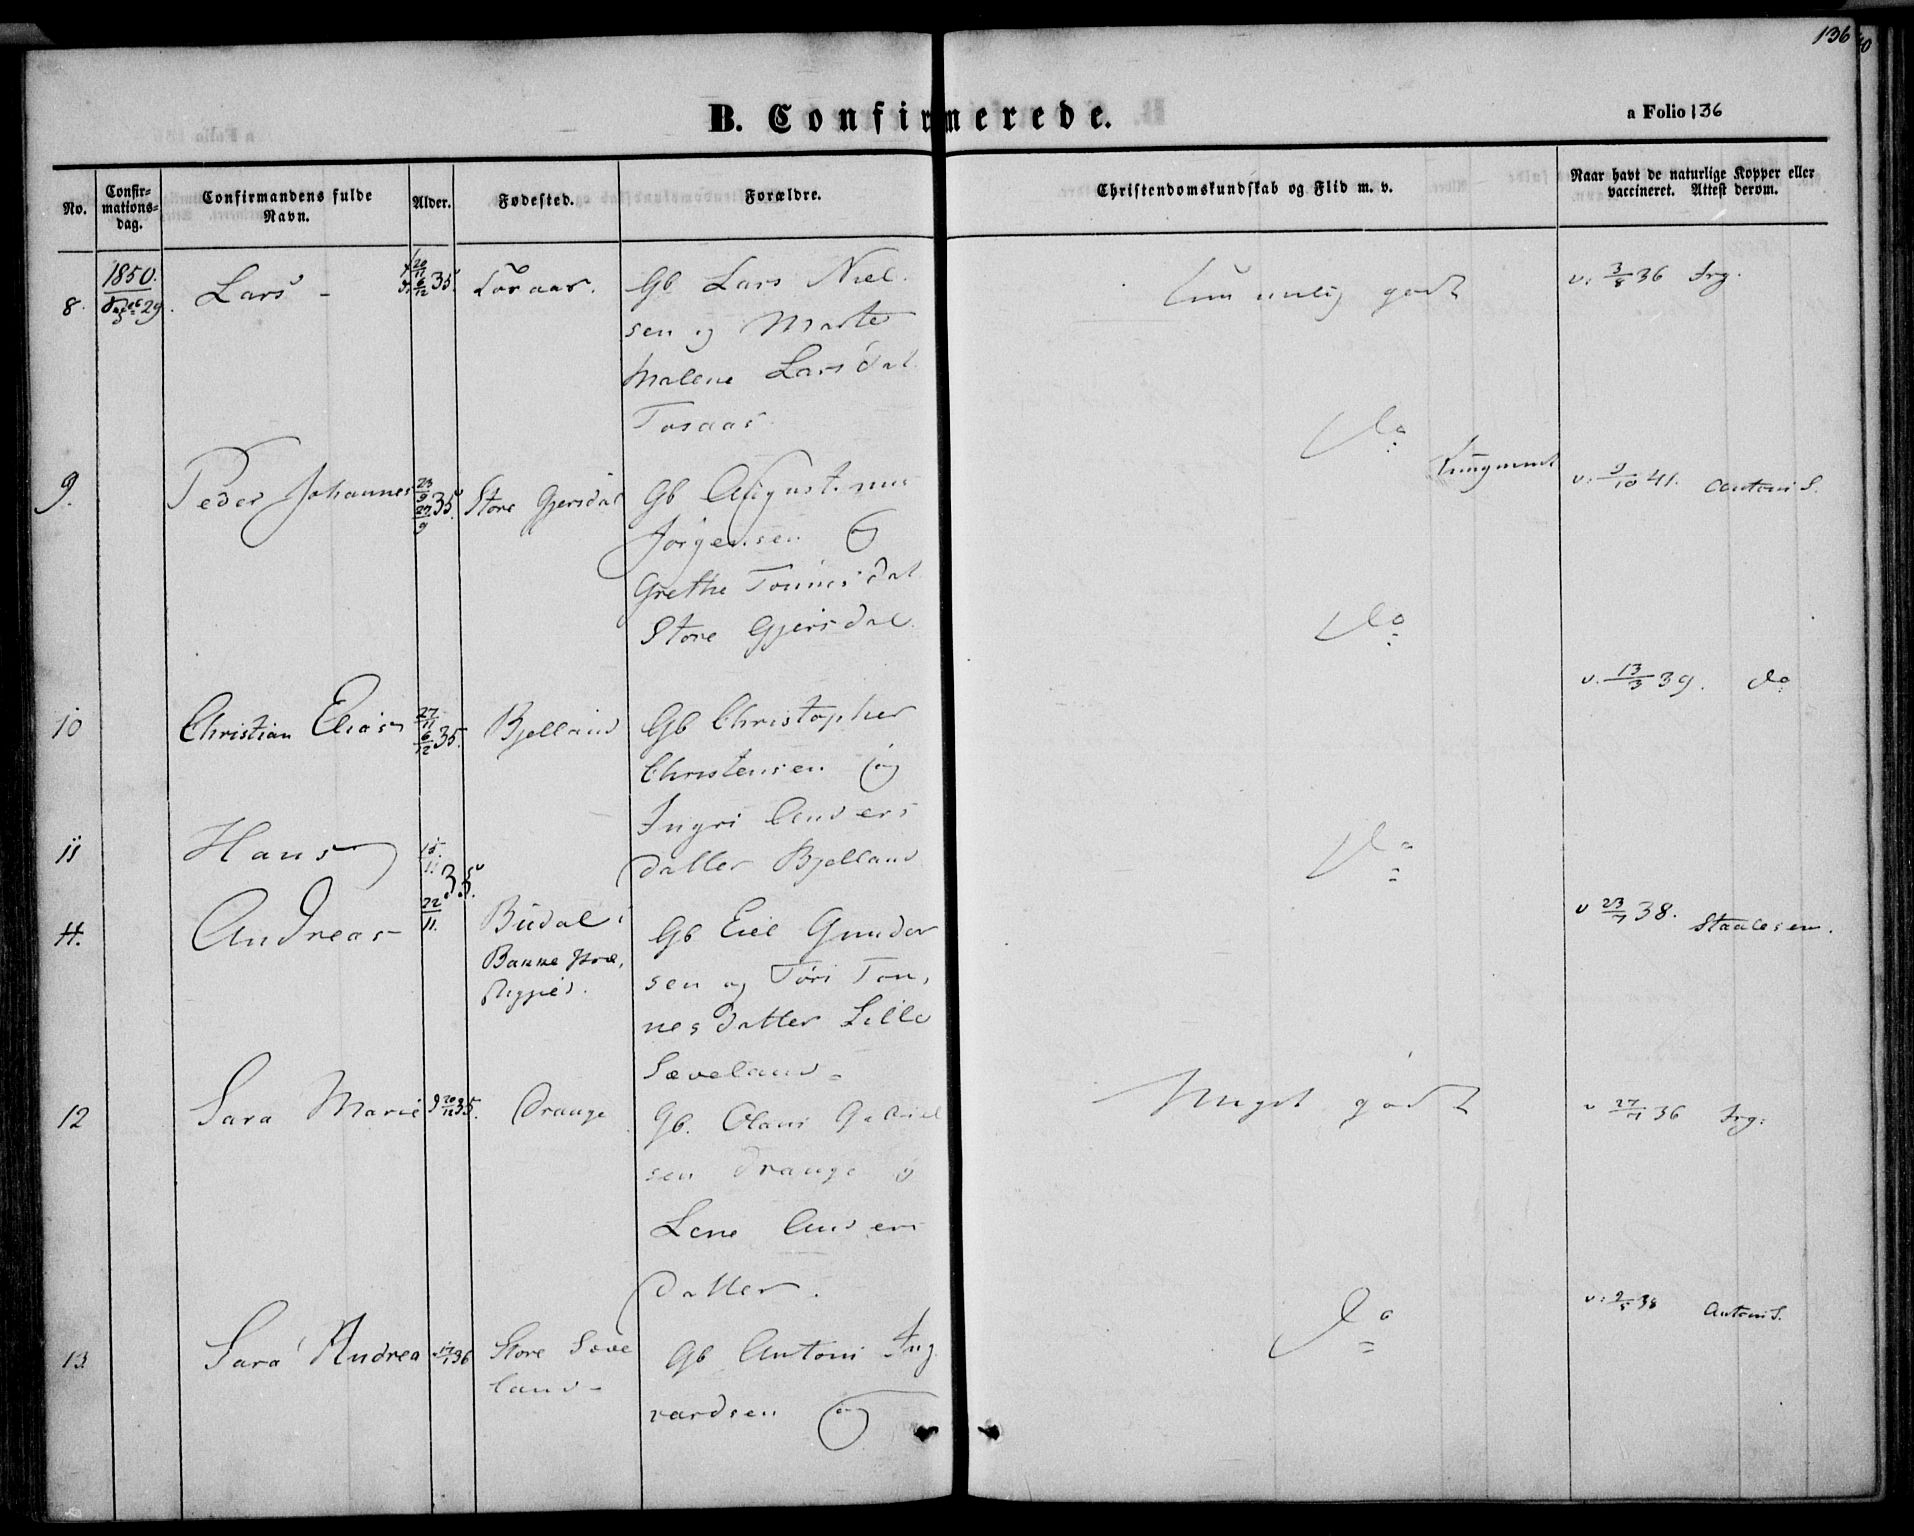 136
B. Confirmerede.
a Folio 136
No.
Confir-
mations-
dag.
Confirmandens fulde
Navn.
Alder.
Fødested.
Forældre.
Christendomskundskab og Flid m. v.
Naar havt de naturlige Kopper eller
vaccineret. Attest derom.
8.
1850.
29.
Lars
6/12 35.
Gb Lars Niel-
sen og Marte
Malene Larsdat
Tosaas
godt
v. 3/8 36 Irg.
9.
Peder Johannes
23/9 27/9 35.
Store Gjersdal
Gb Augustinus
Jörgensen og
Grethe Tönnesdat
Store Gjersdal.
do
v. 9/10 41. Antoni S.
10
Christian Elias
27/11 6/12 35.
Bjelland
Gb Christopher
Christensen og
Ingri Anders
datter Bjelland
do
v. 13/3 39. do
11
Hans
Andreas
15/11 22/11 35.
Budal i
Bakke Præ-
Gb Eiel Gunder
sen og Töri Tön-
nesdatter Lille
Sæveland
do
v 23/7 38. Staalesen.
12
Sara Marie
20/12 35.
Drange
Gb. Olaus Gabriel
sen Drange og
Lene Anders
datter.
Meget godt
v 27/7 36 Irg:
13
Sara Andrea
36
Store Sæve
land
Gb Antoni Ing
vardsen og
do
v: 2/5 38 Antoni S.